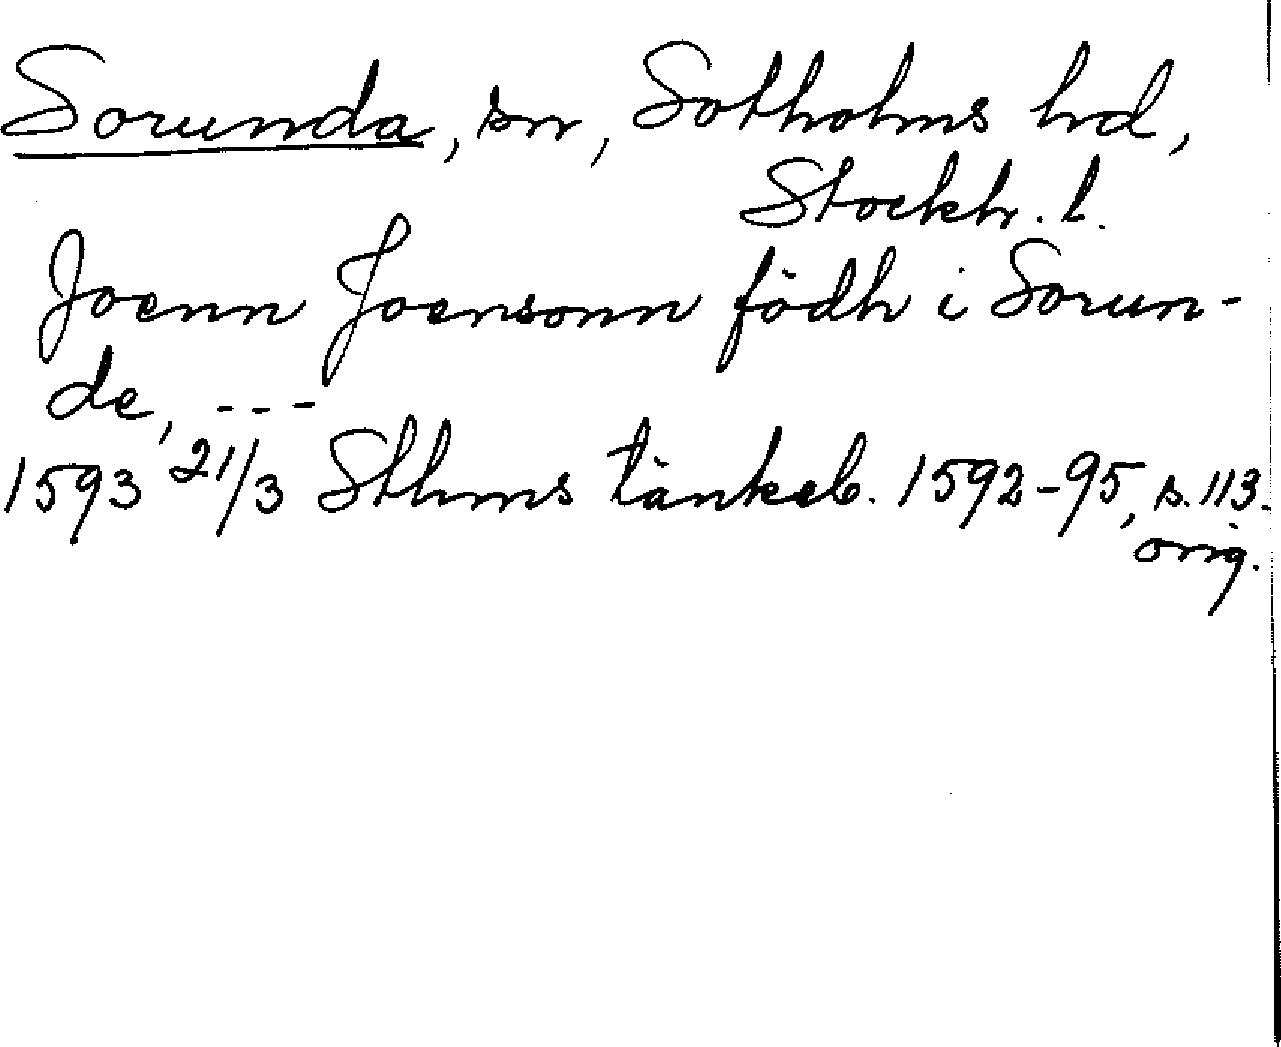 Sorunda, sn, Sotholms hd,
Stockh. l.
Joenn Joensonn födh i Sorun-
de, ---
1593 21/3 Sthms tänkeb. 1592-95, s. 113.
orig.